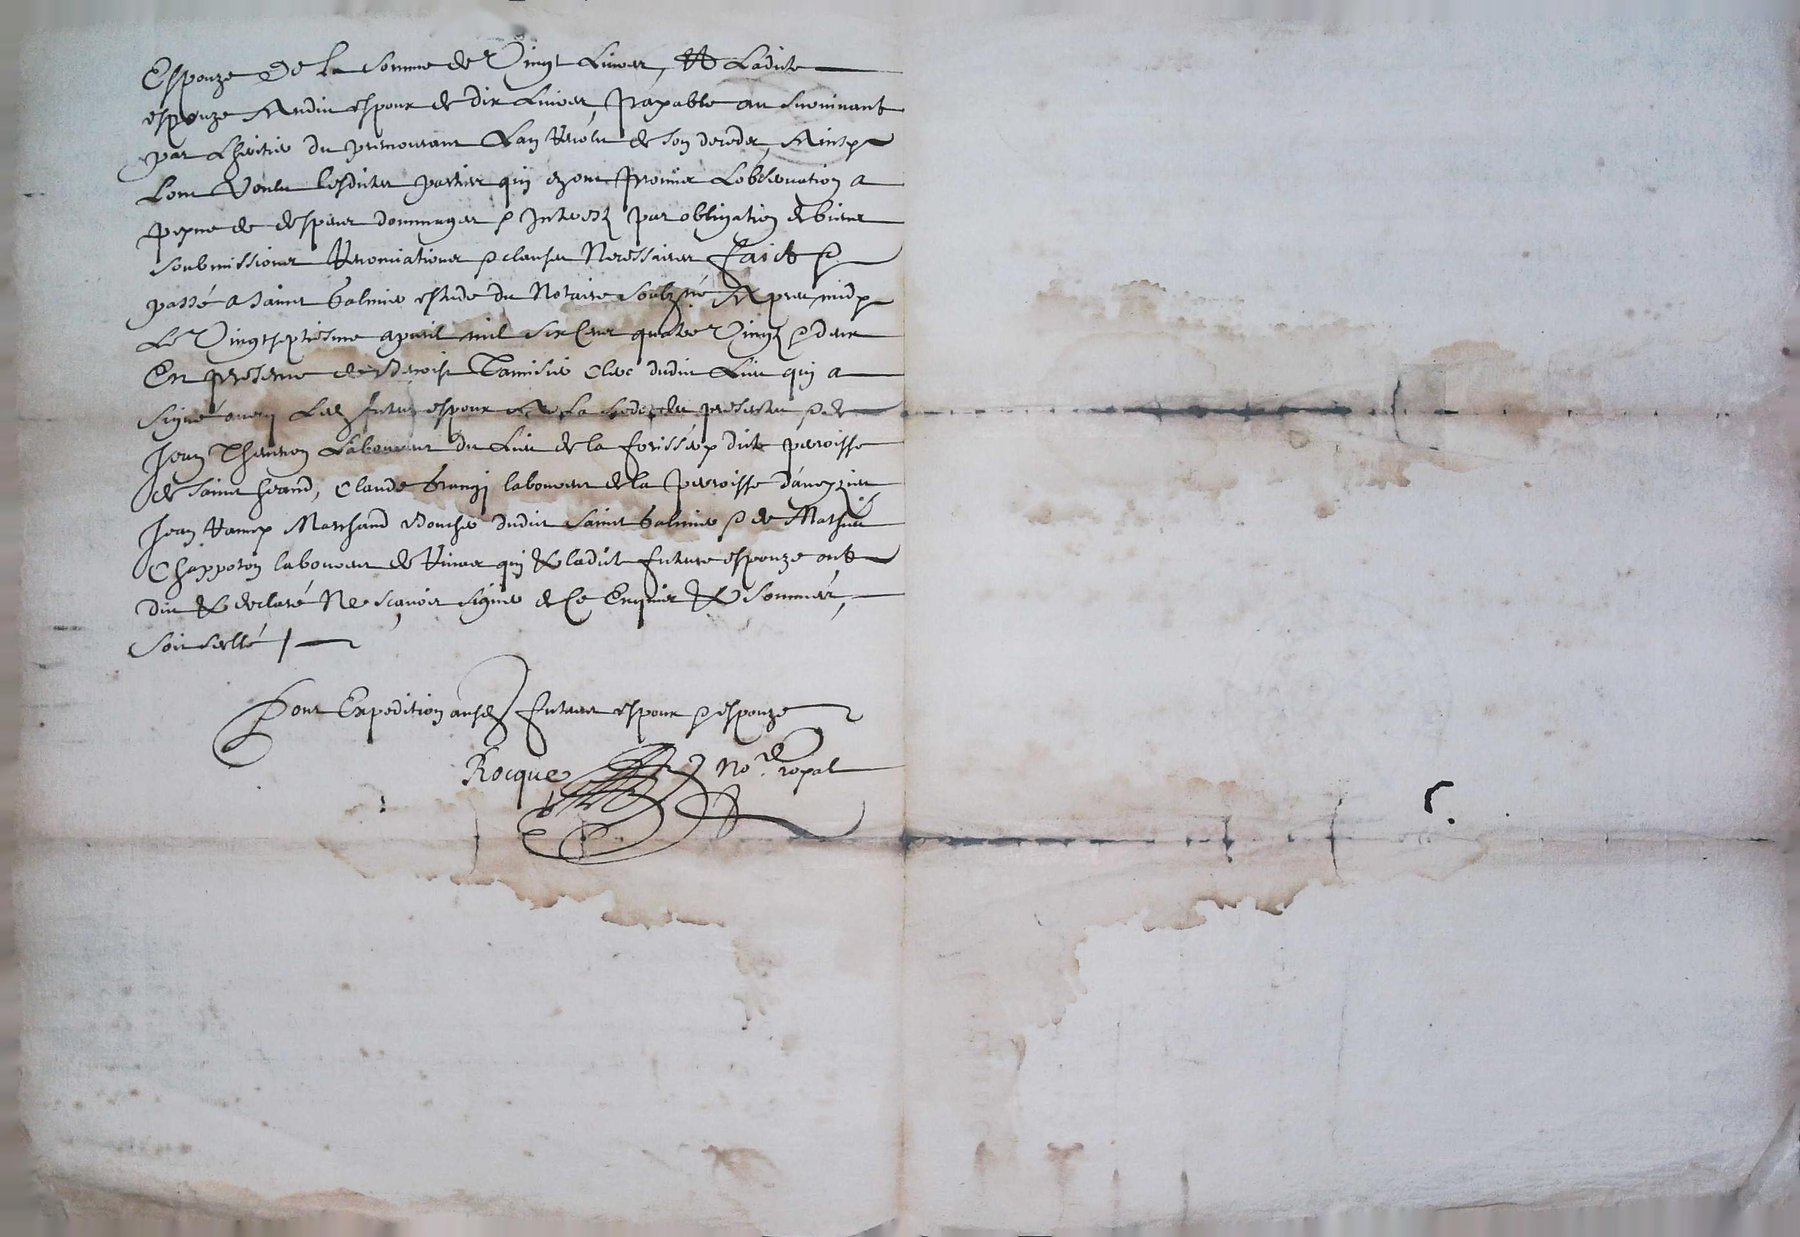 Espouze De la somme de Vingt Livres, Et Ladite
espouze Audit espoux de dix Livres, Payable au survivant
par Lheritier du premourant Lan Revolu de son decedz, Ainsy
Lont Voulu lesdites parties qui ezont promis Lobservation a
peyne de despens dommages & Interestz par obligation de biens
soubmissions Renonciations & clauses Necessaires faict &
passé a Saint Galmier estude du Notaire soubzné Apres midy
Le Vingtseptiesme apvril mil six Cens quatre Vingtz & deux
En presence de Benoist Tamisier Clerc dudit Lieu qui a
signé avecq Led futur espoux Et La cedde des presentes & de
Jean Thevenon Laboureur du Lieu de la forissery dite parroisse
de Saint heand, Claude Grangi laboureur de la Parroisse d'aveyzieu
Jean Ramey Marchand Boucher dudit Saint Galmier & de Mathieu
Chappoton laboureur de Rivas qui Et ladite future espouze ont
dit Et declaré Ne scavoir signer de Ce Enquis Et sommés,
Soit sellé /
Pour Expedition ausd futurs espoux & espouze
Rocque No.re royal